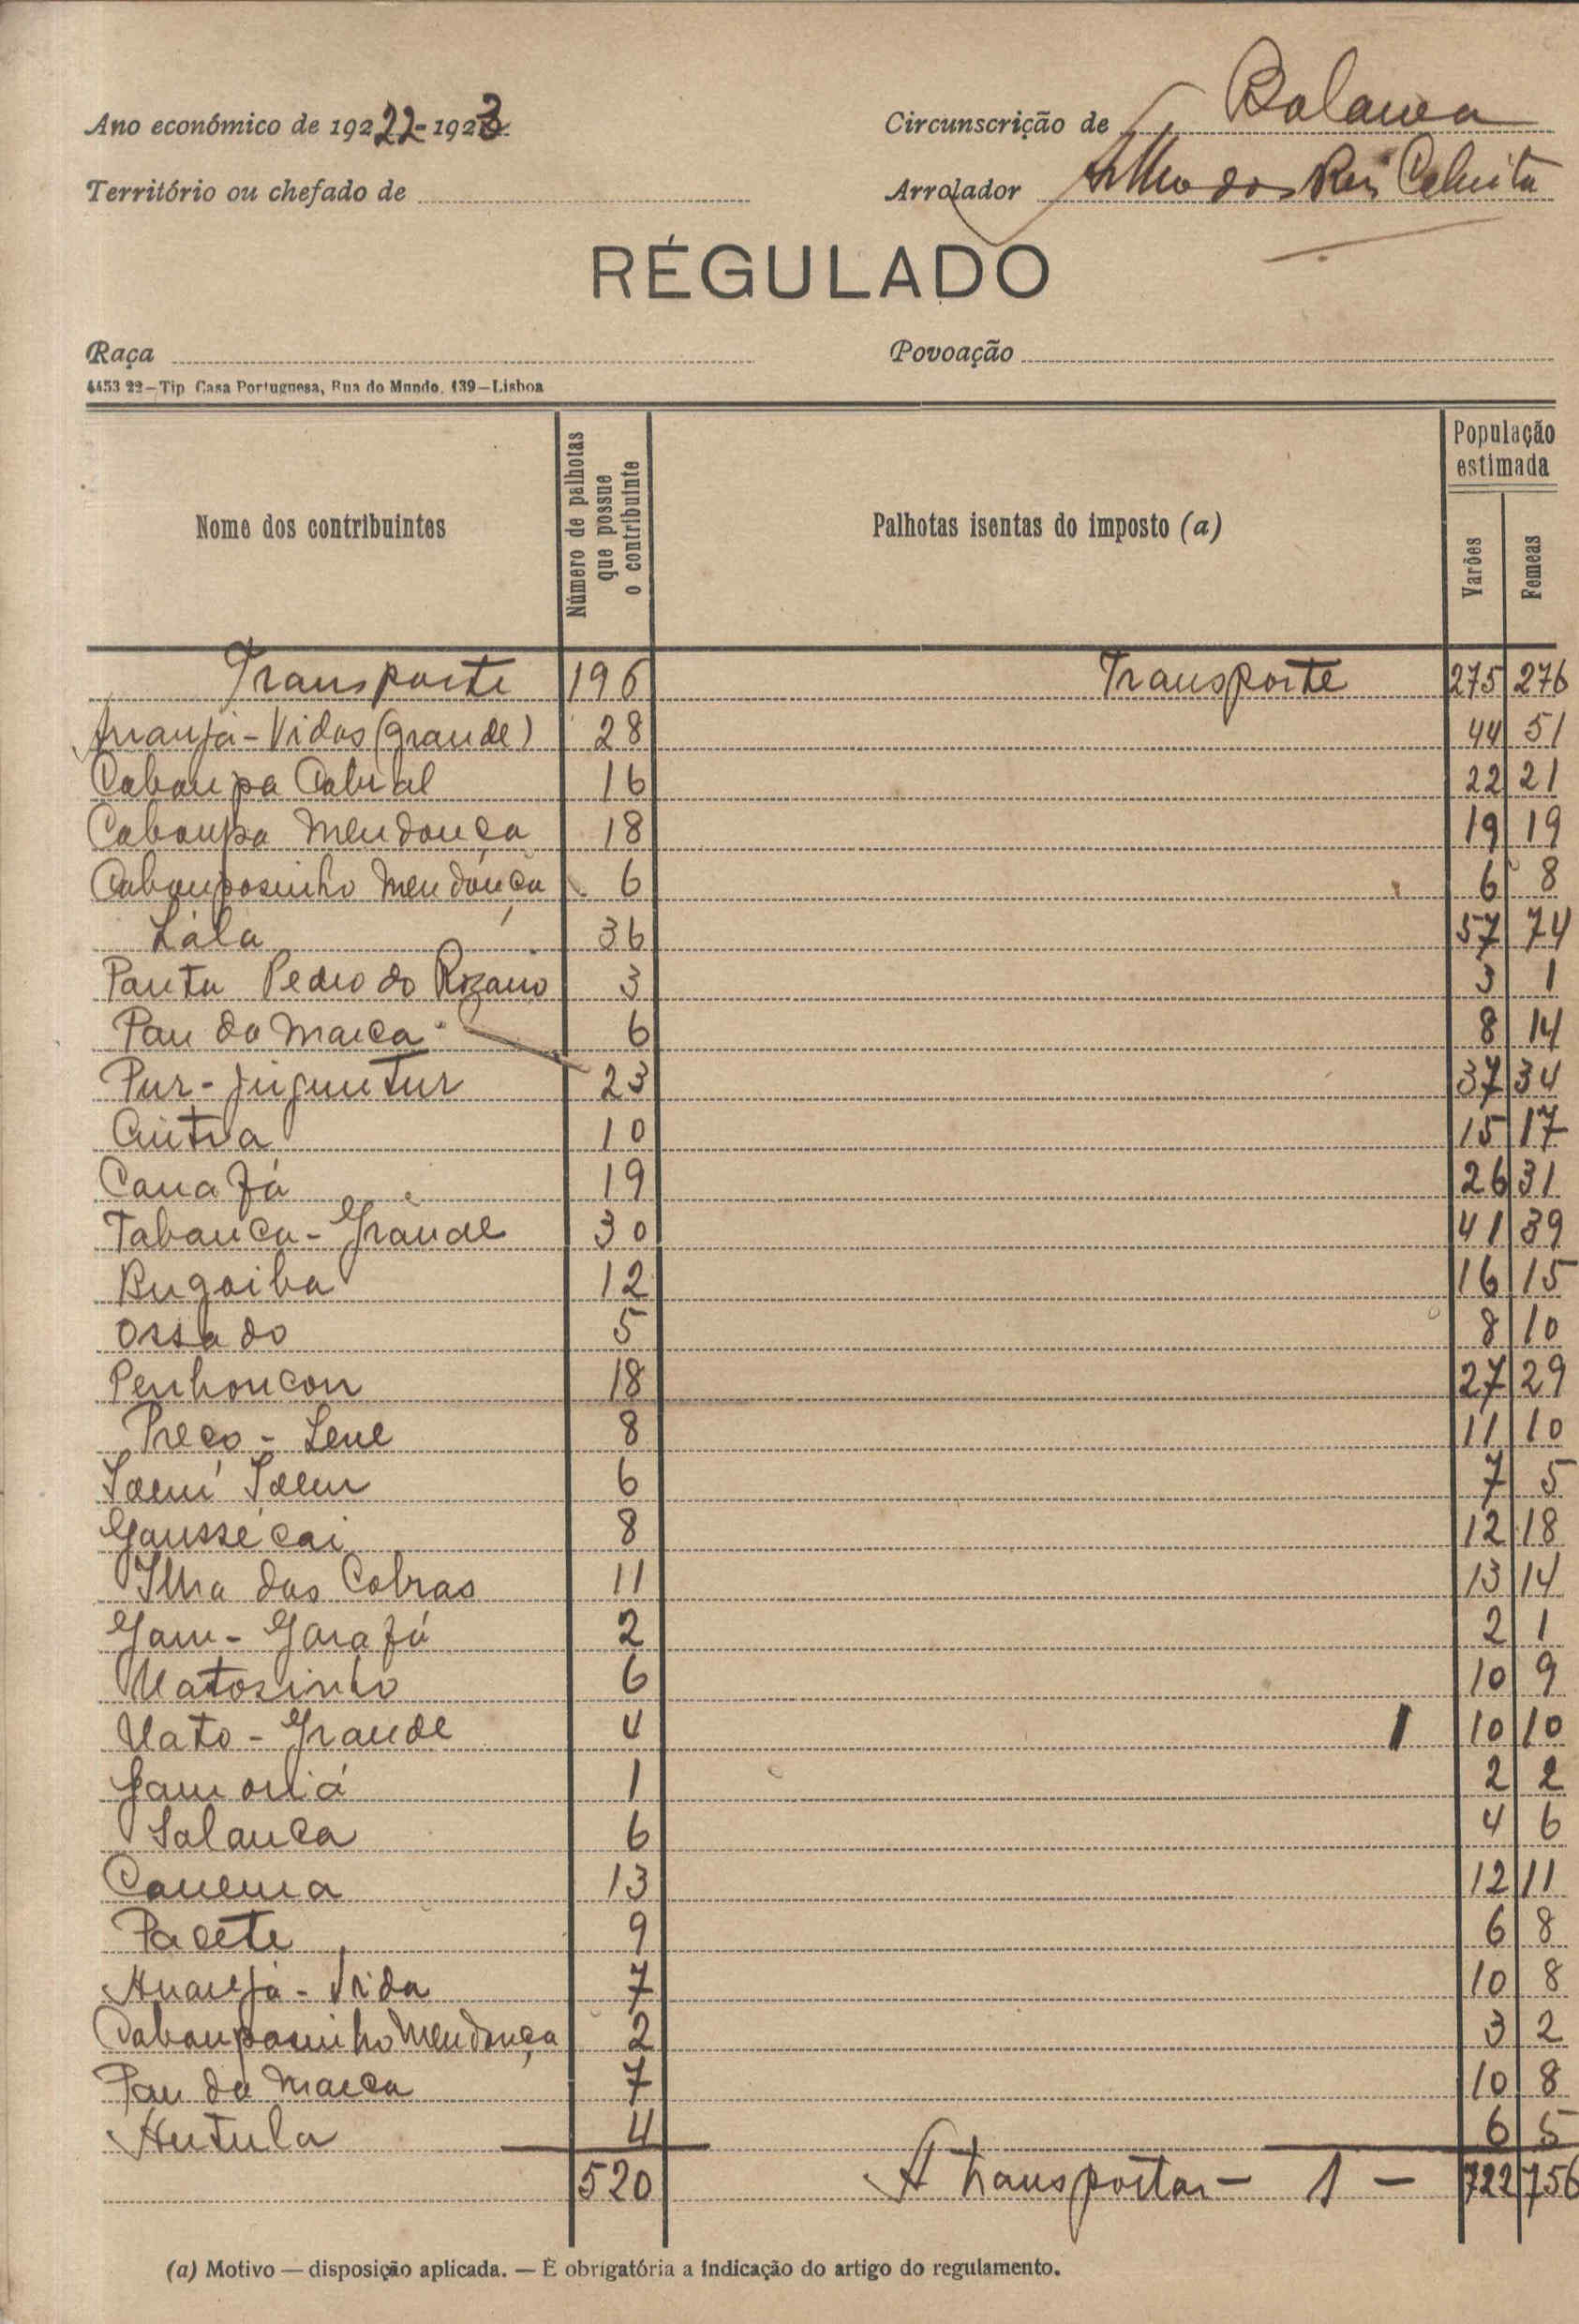 Ano económico de 1922-1923
Circunscrição de Balanta
Território ou chefado de
Arrolador dos Reis
RÉGULADO
Raça
Povoação
4453 22—Tip Casa Portuguesa, Rua do Mundo, 139—Lisboa
Nome dos contribuintes
Número de palhotas que possue o contribuinte
Palhotas isentas do imposto (a)
População estimada
Varões
Femeas
Transporte 196 Transporte 275 276
-Vidas (grande) 28 44 51
Cabampa Cabral 16 22 21
Cabampa Mendonça 18 19 19
Cabampasinho Mendonça 6 6 8
Lála 36 57 74
Panta Pedro do Rozario 3 3 1
Pau da Marca 6 8 14
Pur- 23 37 34
Cintra 10 15 17
Canafá 19 26 31
Tabanca-Grande 30 41 39
Bugaiba 12 16 15
Ossado 5 8 10
Penhoncon 18 27 29
Preço - Lene 8 11 10
6 7 5
Gaussécai 8 12 18
Ilha das Cobras 11 13 14
Gam-Garafá 2 2 1
Matosinho 6 10 9
Mato-Grande 4 1 10 10
Gam 1 2 2
Salanca 6 4 6
Canema 13 12 11
Pacete 9 6 8
-Vida 7 10 8
Cabampasinho Mendonça 2 3 2
Pau da Marca 7 10 8
Antula 4 6 5
520 A transportar - 1 - 722 756
(a) Motivo — disposição aplicada. — É obrigatória a indicação do artigo do regulamento.